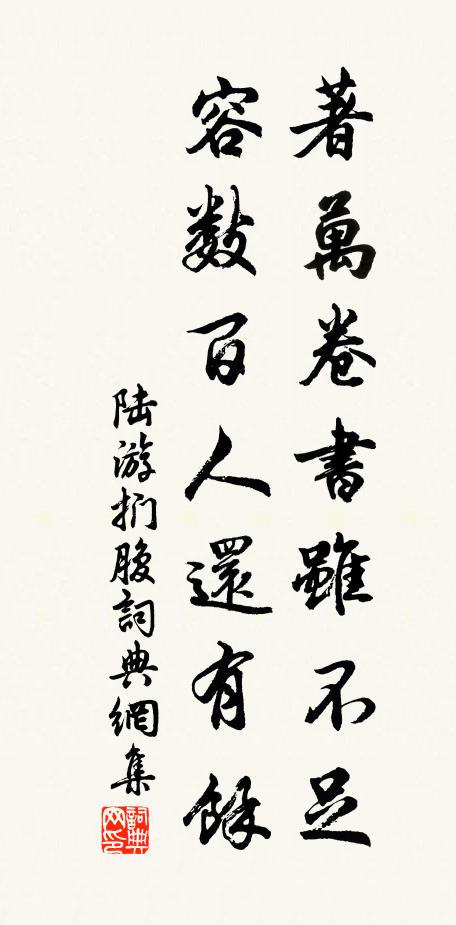 著萬卷書雖不足
容數百人還有餘
陸游捫腹詞典網集
詞典網印